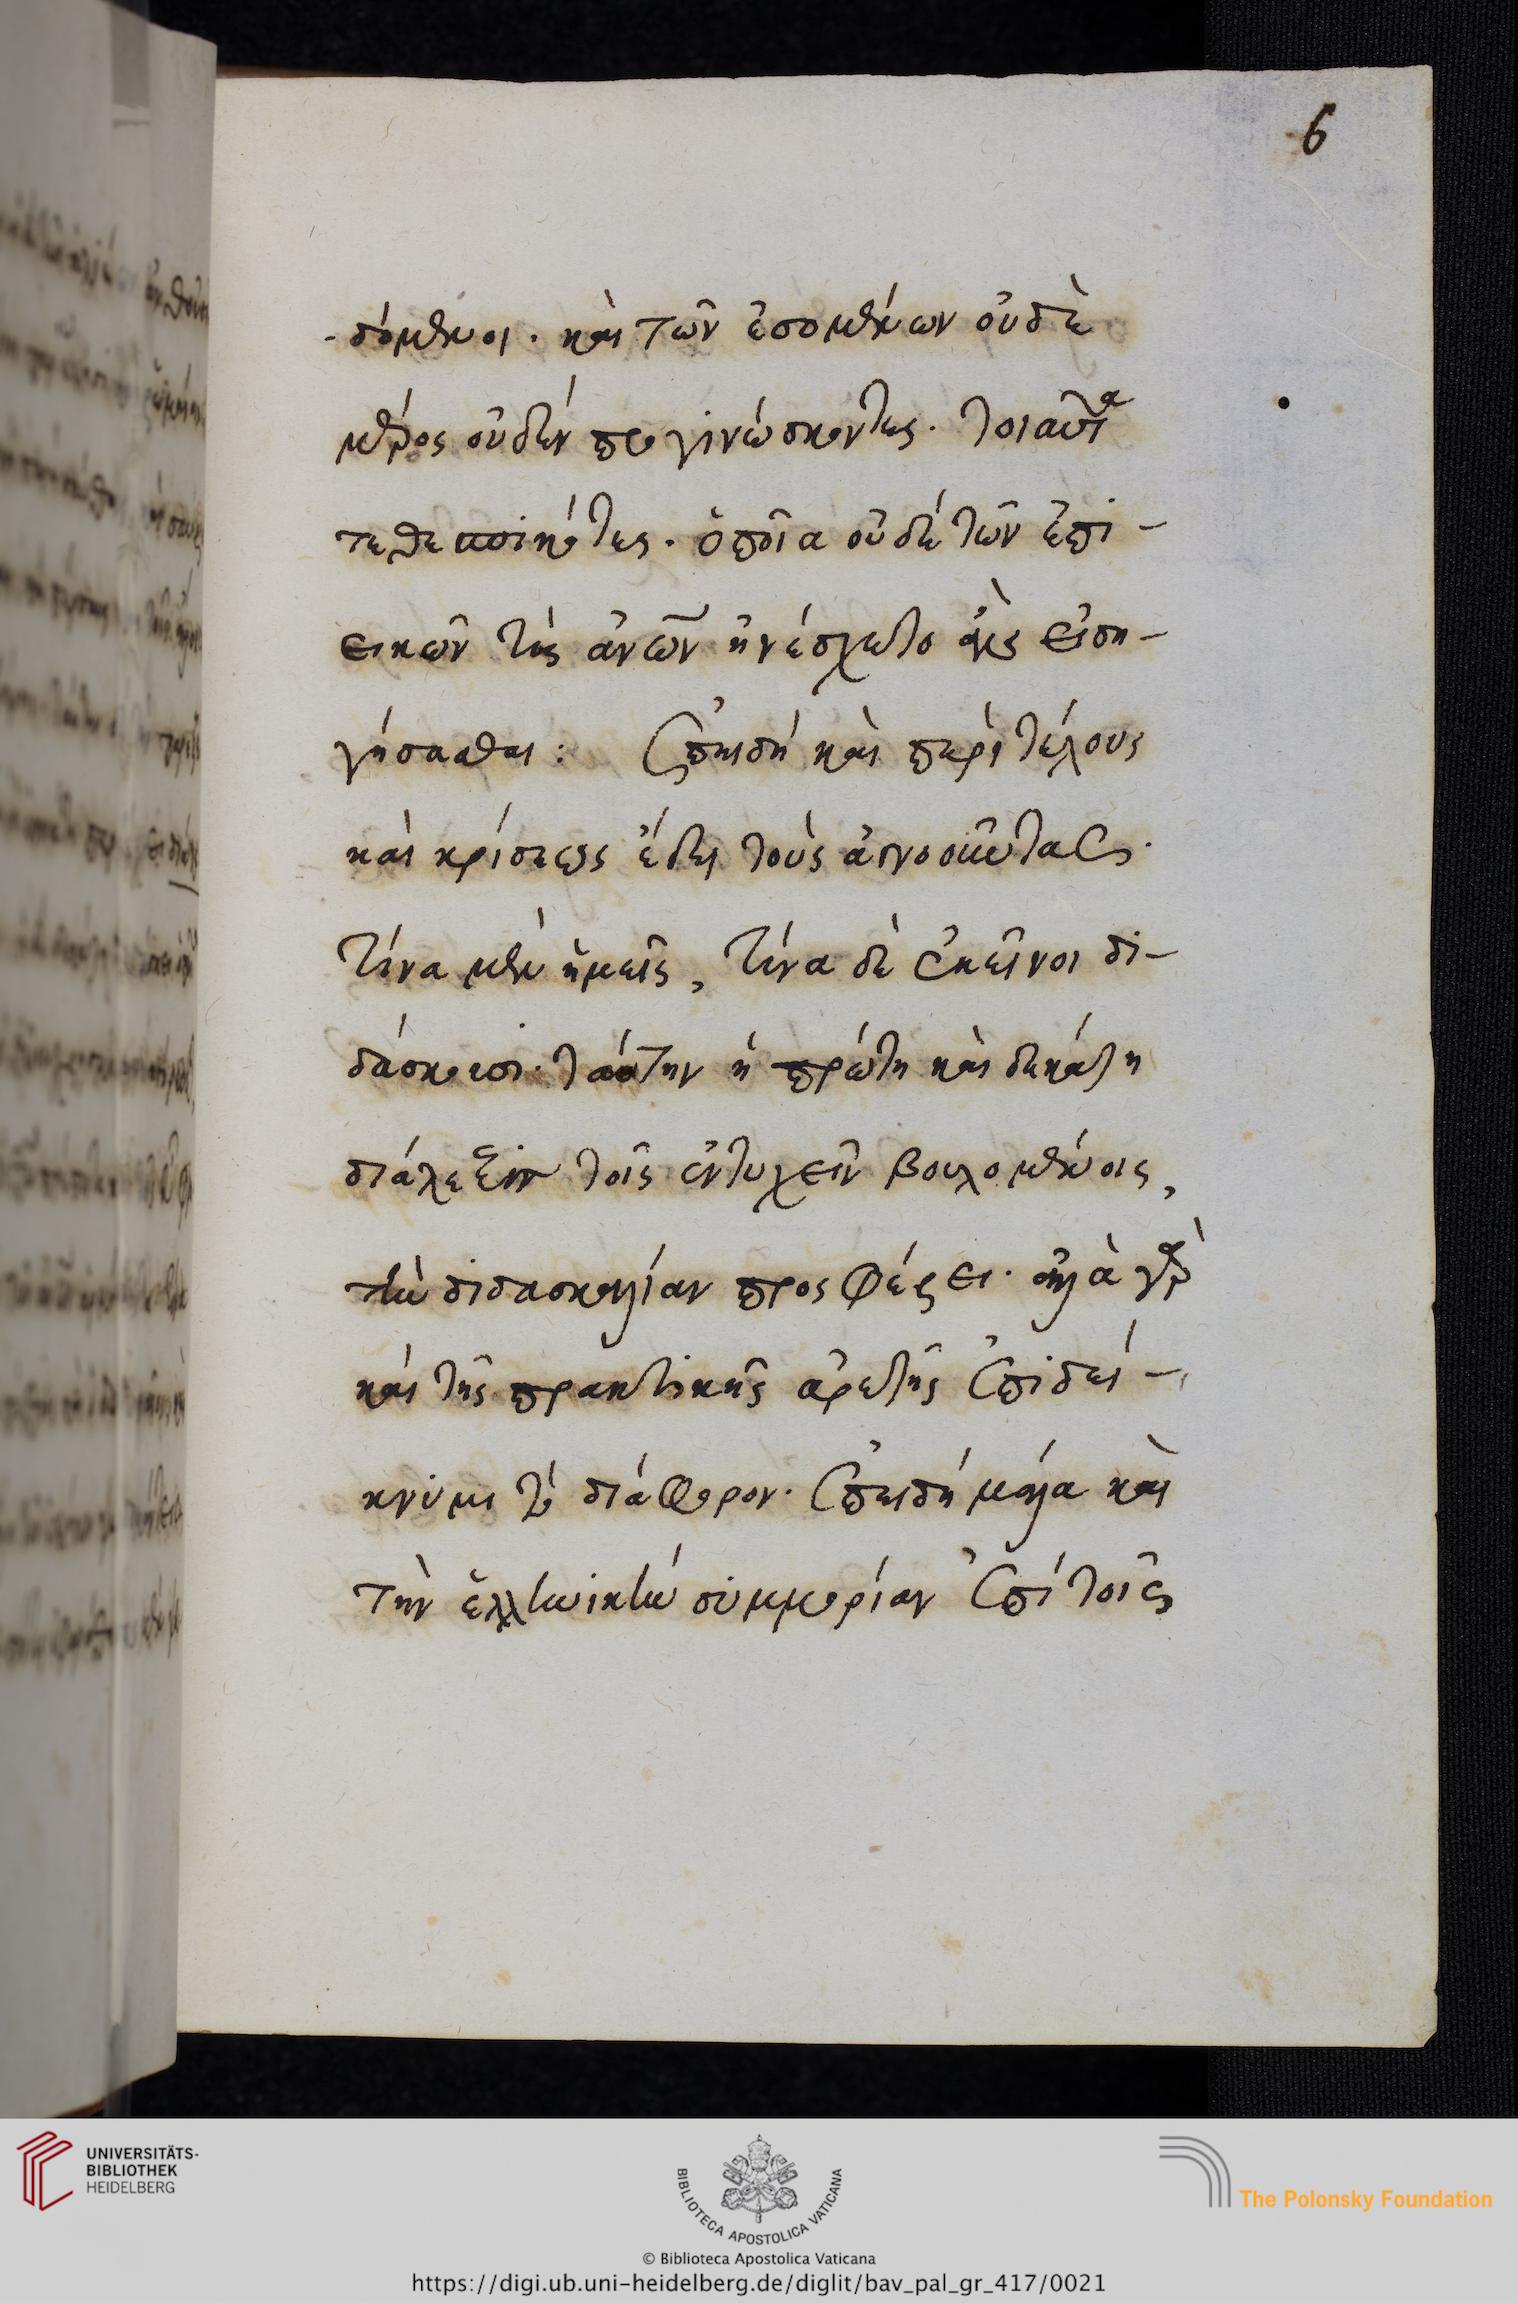 6
-δόμενοι. καὶ τῶν ἐσομένων οὐδὲ
μέρος οὐδὲν προγινώσκοντες. τοιαῦτα
τεθεσπικότες. ὁποῖα οὐδὲ τῶν ἐπι-
εικῶν τίς ἀνῶν ἠνέσχετο ἂν εἰση-
γήσασθαι: Ἐπειδὴ καὶ περὶ τέλους
καὶ κρίσεως ἔδει τοὺς ἀγνοοῦντας.
τίνα μὲν ἡμεῖς, τίνα δὲ ἐκεῖνοι δι-
δάσκουσι. ταύτην ἡ πρώτη καὶ δεκάτη
διάλεξις τοῖς ἐντυχεῖν βουλομένοις,
τὴν διδασκαλίαν προσφέρει. ἀλλὰ γὰρ
καὶ τῆς πρακτικῆς ἀρετῆς ἐπιδεί-
κνυμι τὸ διάφορον. ἐπειδὴ μάλα καὶ
τὴν ἑλληνικὴν συμμορίαν ἐπὶ τοῖς
UNIVERSITÄTS-
BIBLIOTHEK
HEIDELBERG
BIBLIOTECA APOSTOLICA VATICANA
© Biblioteca Apostolica Vaticana
The Polonsky Foundation
https://digi.ub.uni-heidelberg.de/diglit/bav_pal_gr_417/0021